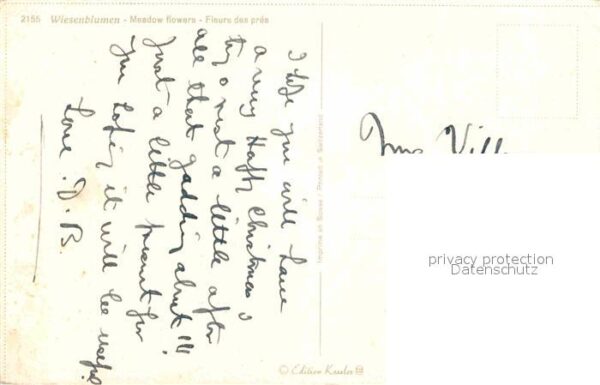 2155 Wiesenblumen - Meadow flowers - Fleurs des prés
I hope you will have
a very Happy Christmas &
try & rest a little after
all that gadding about!!!
Just a little present for
you hoping it will be useful
Love. D. B.
Imprimé en Suisse / Printed in Switzerland
Mrs Vill
privacy protection
Datenschutz
© Edition Kessler